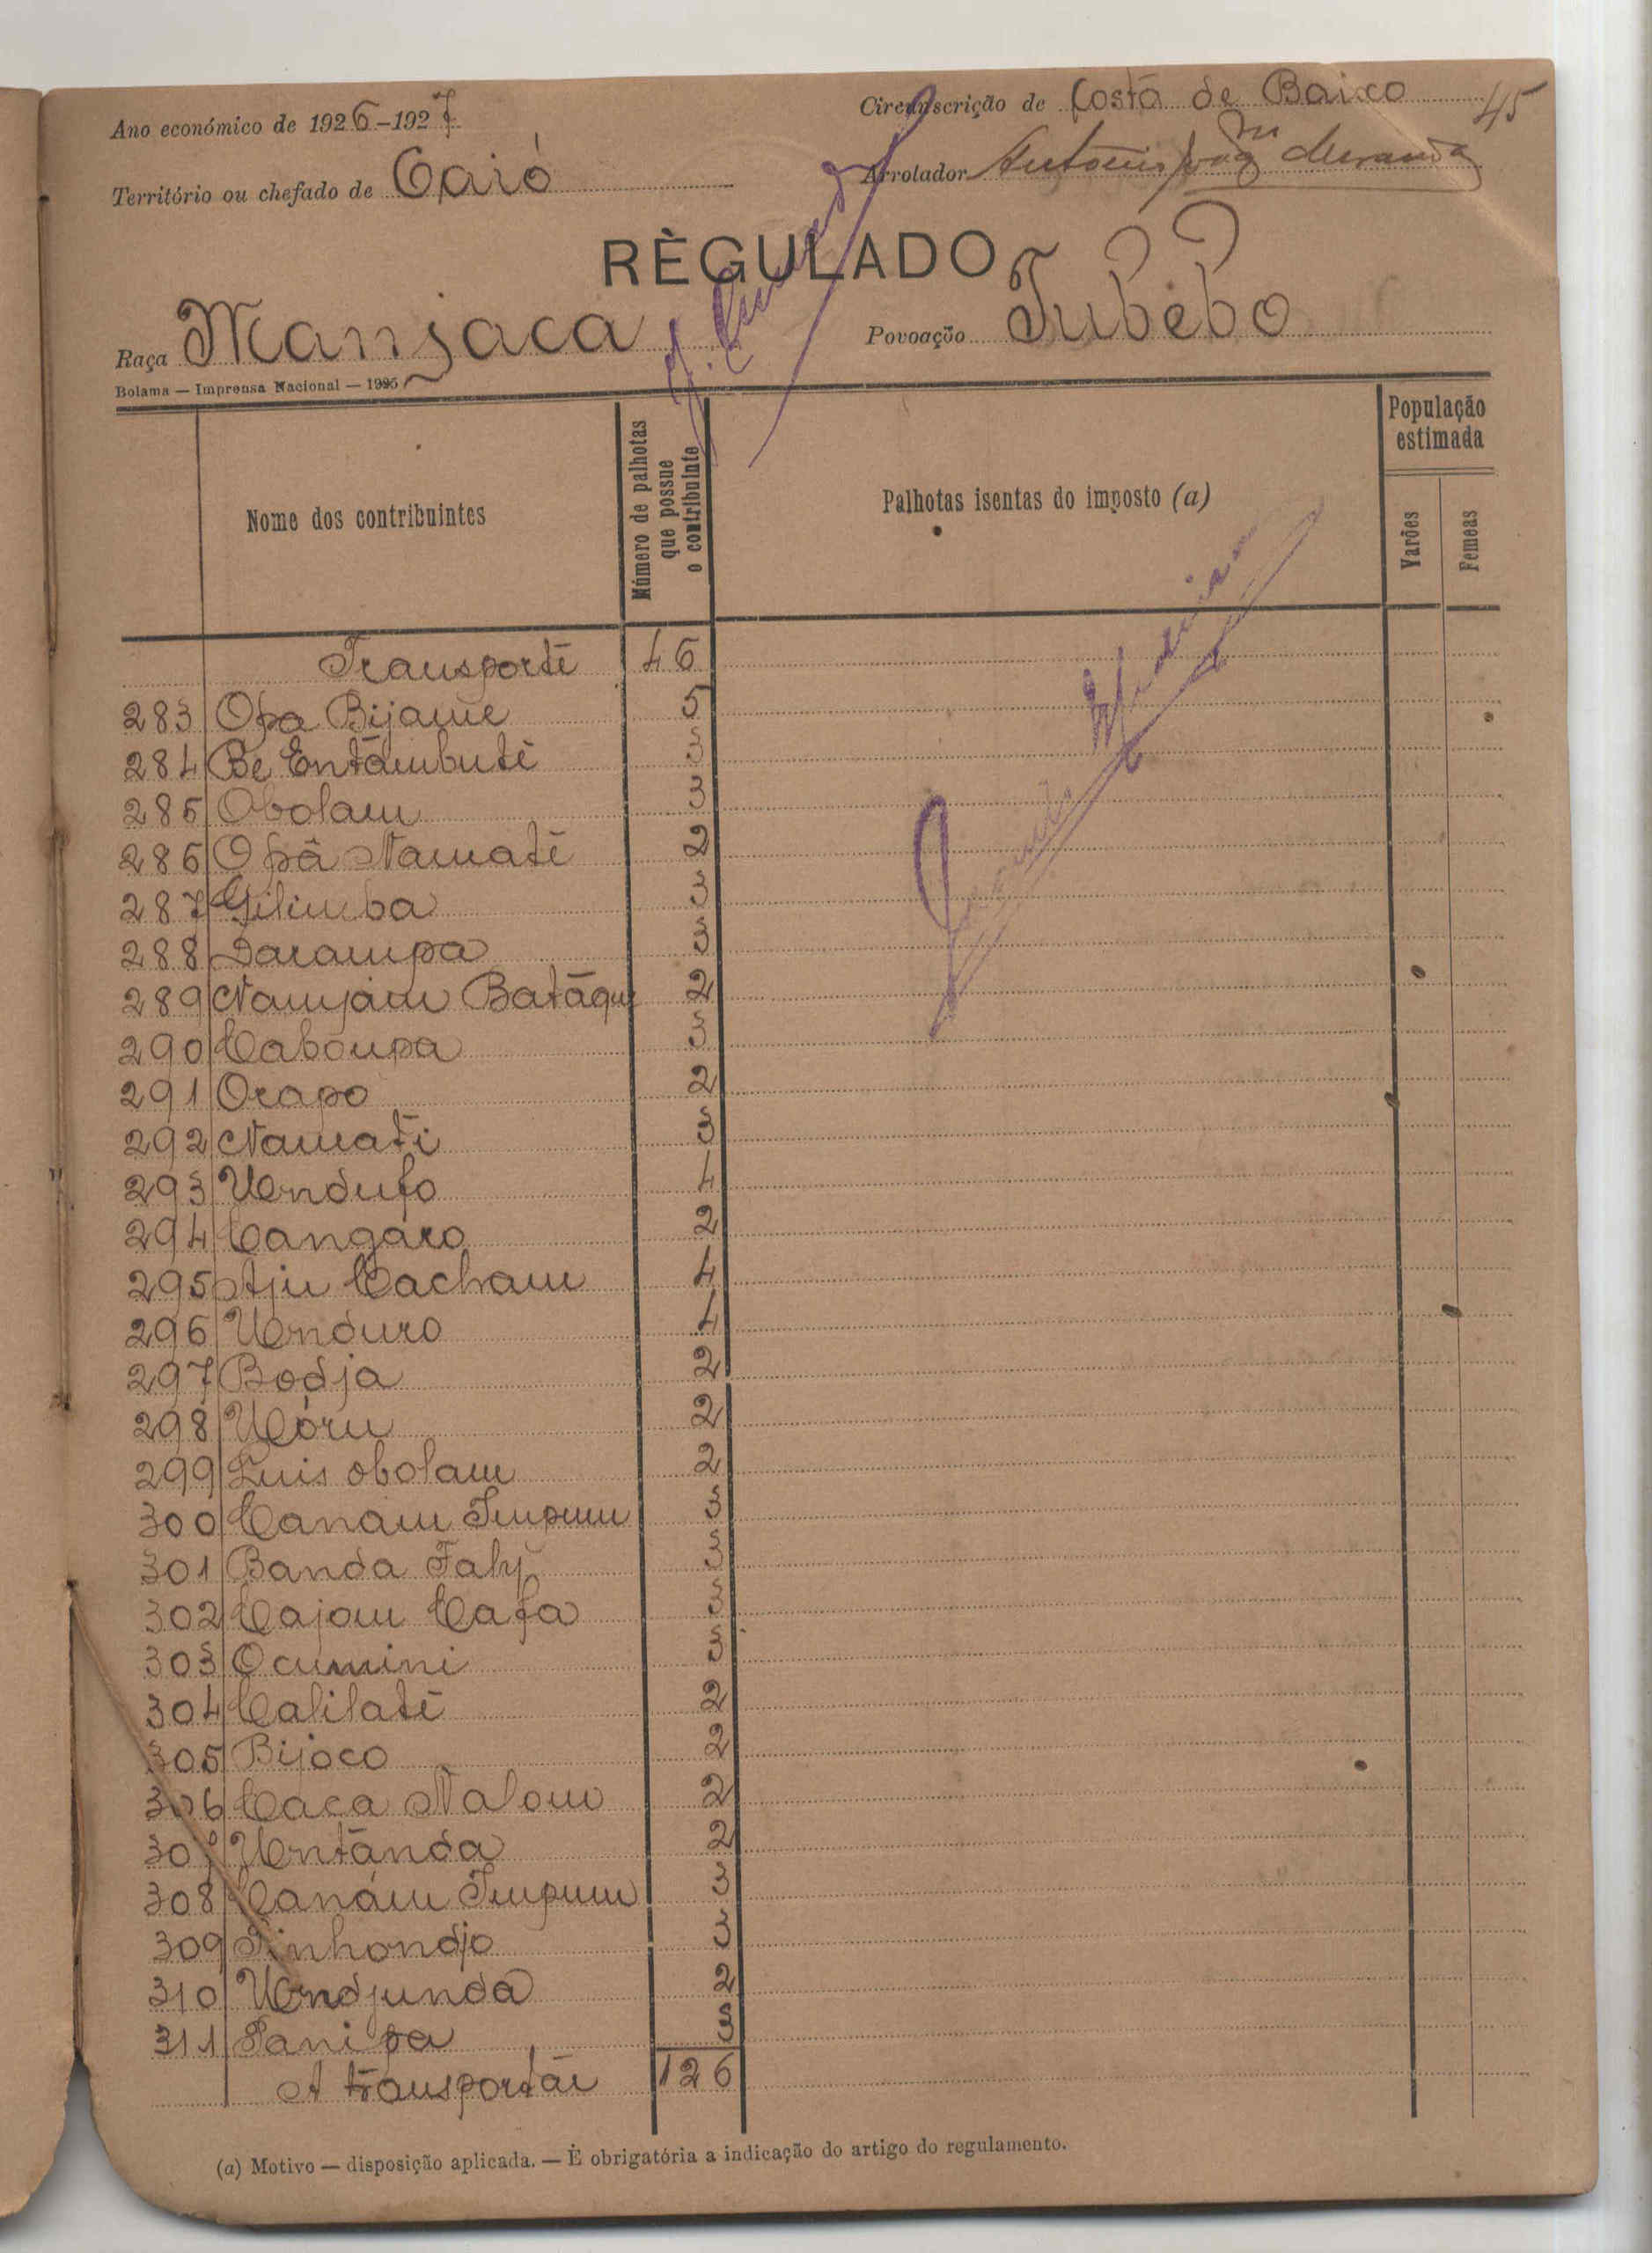 Ano económico de 1926-1927
Circunscrição de Costa de Baixo 45
Território ou chefado de Caió
Arrolador António
RÈGULADO
Raça Manjaca
Povoação Tubèbo
Bolama — Imprensa Nacional — 1925
Nome dos contribuintes
Número de palhotas que possue o contribuinte
Palhotas isentas do imposto (a)
População estimada
Varões
Femeas
Transporte 46
283 Opa Bijame 5
284 Bé Entambute 3
285 Obolam 3
286 Opâ Namate 2
287 Gilimba 3
288 Darampa 3
289 Namjam Batáque 2
290 Caboupa 3
291 Ocapo 2
292 Namati 3
293 Undufo 4
294 Cangáro 2
295 Aju Cacham 4
296 Unduro 4
297 Bodja 2
298 Uóru 2
299 Luis obolam 2
300 Canám Impum 3
301 Banda Faly 3
302 Cajom Cafa 3
303 Ocumini 3
304 Calilate 2
305 Bijoco 2
306 Caca Nalom 2
307 Untanda 2
308 Canám Impum 3
309 Finhondjo 3
310 Undjunda 2
311 Panipa 3
A transportar 126
(a) Motivo — disposição aplicada. — É obrigatória a indicação do artigo do regulamento.